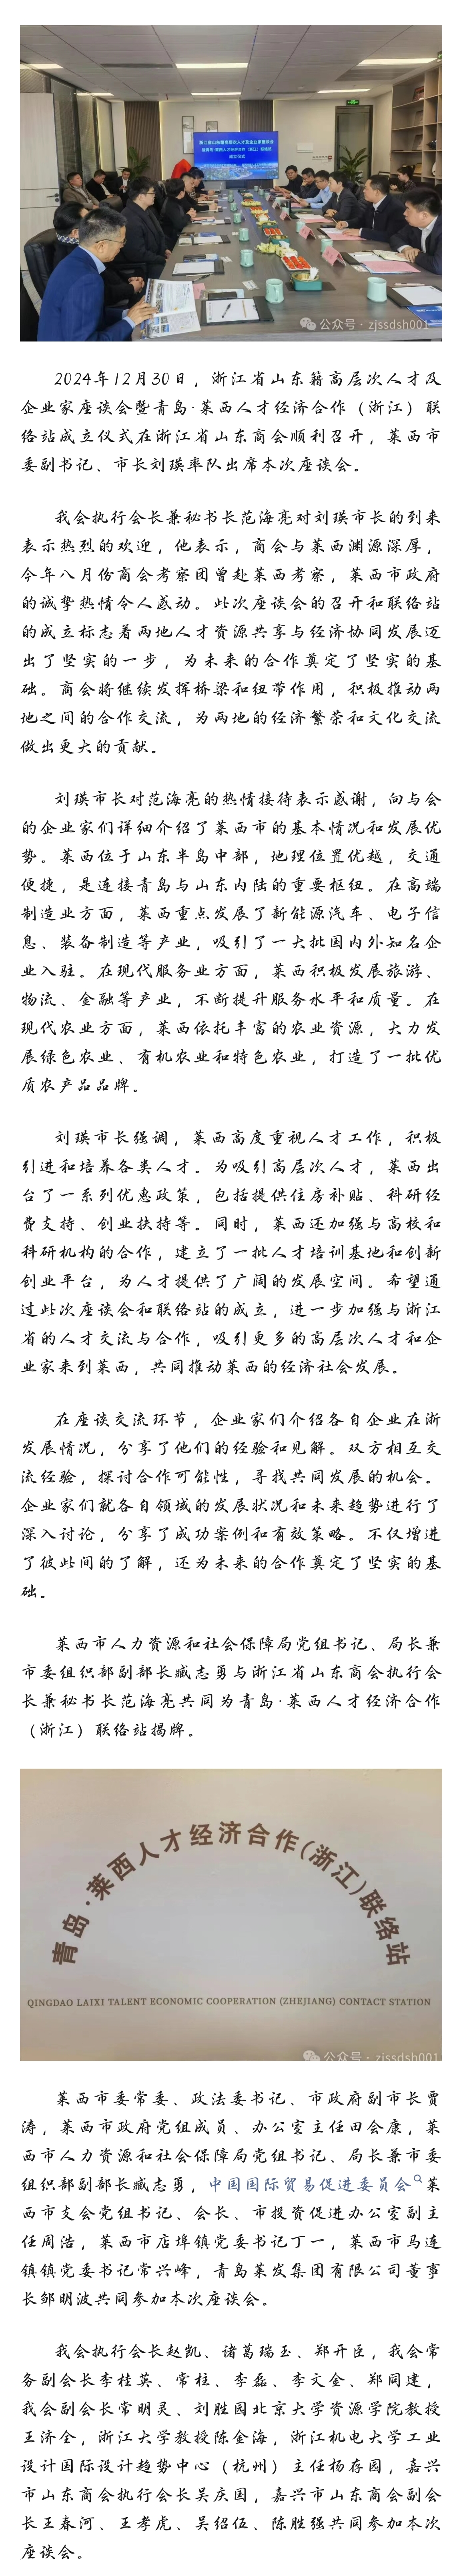 浙江省山东籍高层次人才及企业家座谈会
暨青岛·莱西人才经济合作（浙江）联络站
成立仪式
公众号·zjssdsh001
2024年12月30日，浙江省山东籍高层次人才及
企业家座谈会暨青岛·莱西人才经济合作（浙江）联
络站成立仪式在浙江省山东商会顺利召开，莱西市
委副书记、市长刘瑛率队出席本次座谈会。
我会执行会长兼秘书长范海亮对刘瑛市长的到来
表示热烈的欢迎，他表示，商会与莱西渊源深厚，
今年八月份商会考察团曾赴莱西考察，莱西市政府
的诚挚热情令人感动。此次座谈会的召开和联络站
的成立标志着两地人才资源共享与经济协同发展迈
出了坚实的一步，为未来的合作奠定了坚实的基
础。商会将继续发挥桥梁和纽带作用，积极推动两
地之间的合作交流，为两地的经济繁荣和文化交流
做出更大的贡献。
刘瑛市长对范海亮的热情接待表示感谢，向与会
的企业家们详细介绍了莱西市的基本情况和发展优
势。莱西位于山东半岛中部，地理位置优越，交通
便捷，是连接青岛与山东内陆的重要枢纽。在高端
制造业方面，莱西重点发展了新能源汽车、电子信
息、装备制造等产业，吸引了一大批国内外知名企
业入驻。在现代服务业方面，莱西积极发展旅游、
物流、金融等产业，不断提升服务水平和质量。在
现代农业方面，莱西依托丰富的农业资源，大力发
展绿色农业、有机农业和特色农业，打造了一批优
质农产品品牌。
刘瑛市长强调，莱西高度重视人才工作，积极
引进和培养各类人才。为吸引高层次人才，莱西出
台了一系列优惠政策，包括提供住房补贴、科研经
费支持、创业扶持等。同时，莱西还加强与高校和
科研机构的合作，建立了一批人才培训基地和创新
创业平台，为人才提供了广阔的发展空间。希望通
过此次座谈会和联络站的成立，进一步加强与浙江
省的人才交流与合作，吸引更多的高层次人才和企
业家来到莱西，共同推动莱西的经济社会发展。
在座谈交流环节，企业家们介绍各自企业在浙
发展情况，分享了他们的经验和见解。双方相互交
流经验，探讨合作可能性，寻找共同发展的机会。
企业家们就各自领域的发展状况和未来趋势进行了
深入讨论，分享了成功案例和有效策略。不仅增进
了彼此间的了解，还为未来的合作奠定了坚实的基
础。
莱西市人力资源和社会保障局党组书记、局长兼
市委组织部副部长臧志勇与浙江省山东商会执行会
长兼秘书长范海亮共同为青岛·莱西人才经济合作
（浙江）联络站揭牌。
青岛·莱西人才经济合作(浙江)联络站
QINGDAO LAIXI TALENT ECONOMIC COOPERATION (ZHEJIANG) CONTACT STATION
公众号·zjssdsh001
莱西市委常委、政法委书记、市政府副市长贾
涛，莱西市政府党组成员、办公室主任田会康，莱
西市人力资源和社会保障局党组书记、局长兼市委
组织部副部长臧志勇，中国国际贸易促进委员会莱
西市支会党组书记、会长、市投资促进办公室副主
任周浩，莱西市店埠镇党委书记丁一，莱西市马连
镇镇党委书记常兴峰，青岛莱发集团有限公司董事
长邹明波共同参加本次座谈会。
我会执行会长赵凯、诸葛瑞玉、郑开臣，我会常
务副会长李桂英、常柱、李磊、李文全、郑同建，
我会副会长常明灵、刘胜园北京大学资源学院教授
王济全，浙江大学教授陈金海，浙江机电大学工业
设计国际设计趋势中心（杭州）主任杨存园，嘉兴
市山东商会执行会长吴庆国，嘉兴市山东商会副会
长王春河、王孝虎、吴绍伍、陈胜强共同参加本次
座谈会。